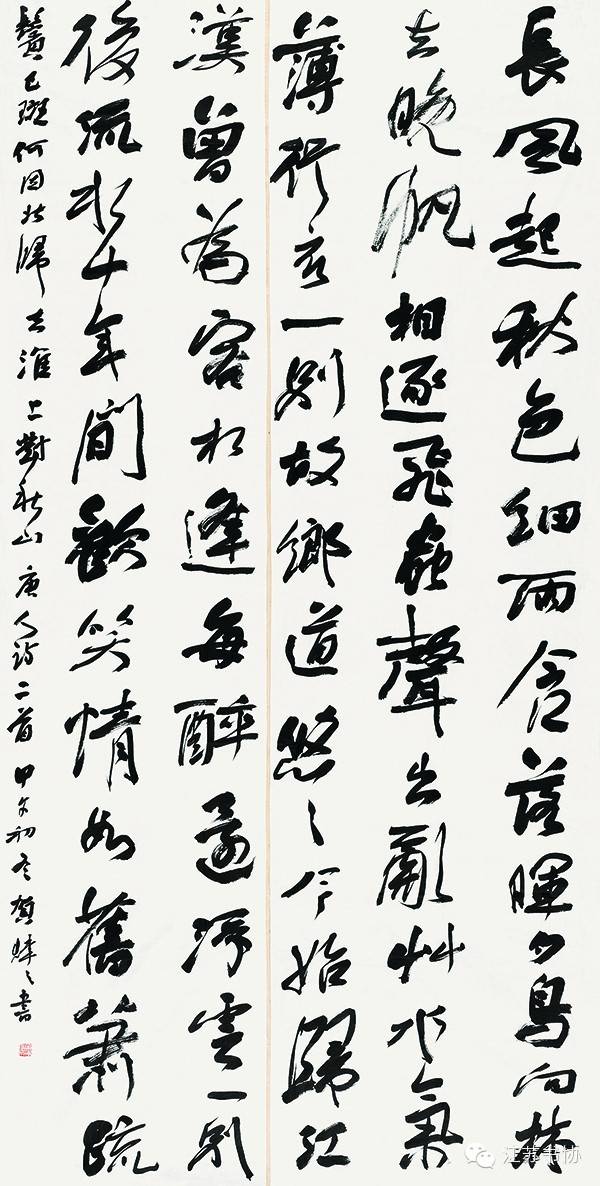 長風起秋色細雨含落暉夕鳥向林
去晚帆相逐飛蟲聲出亂艸水氣
薄行衣一別故鄉道悠〻今始歸江
漢曾為客相逢每醉還浮雲一別
後流水十年間歡笑情如舊蕭疏
鬢已斑何因北歸去淮上對秋山 唐人詩二首 甲午初冬賀書
书协